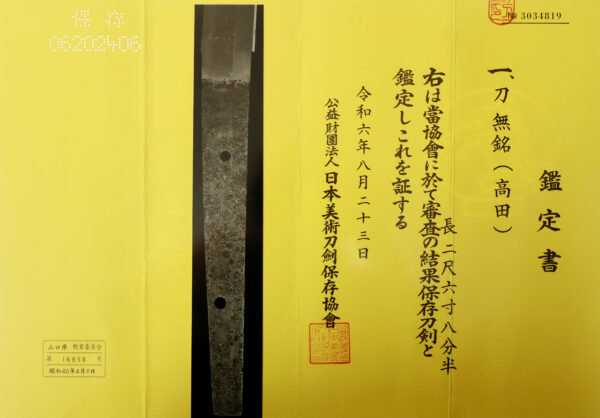 鑑定書
一、刀 無銘(高田)
長二尺六寸八分半
右は當協會に於て審査の結果保存刀剣と
鑑定しこれを証する
令和六年八月二十三日
公益財團法人 日本美術刀劍保存協會
№ 3034819
保存
06202406
山口県 教育委員会
第 16858 号
昭和40年4月9日